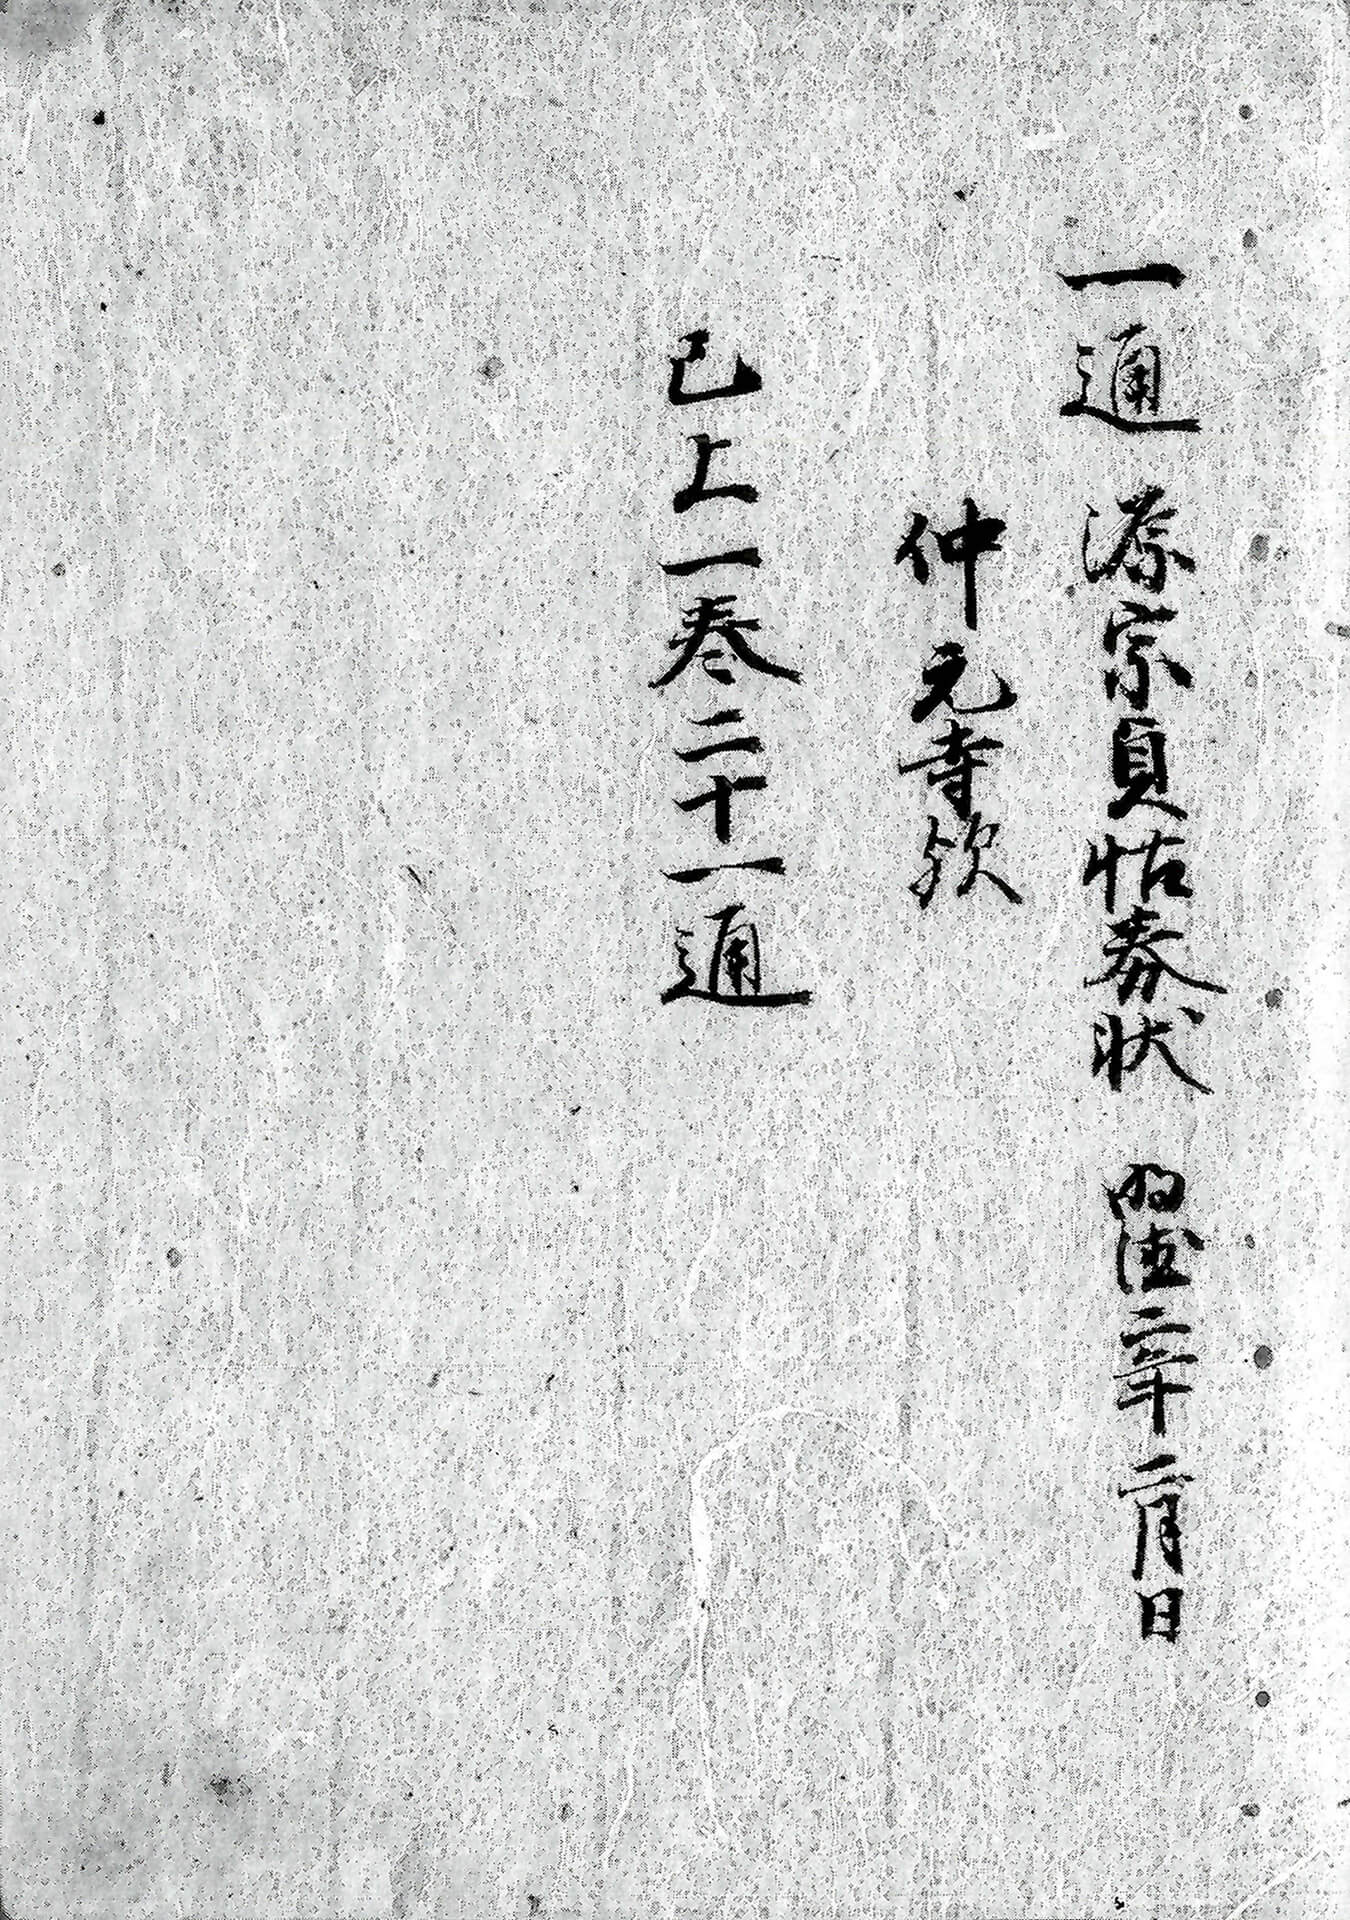 一通 源宗貞沽券状 明徳二年十二月日
仲元寺欤
已上一巻二十一通